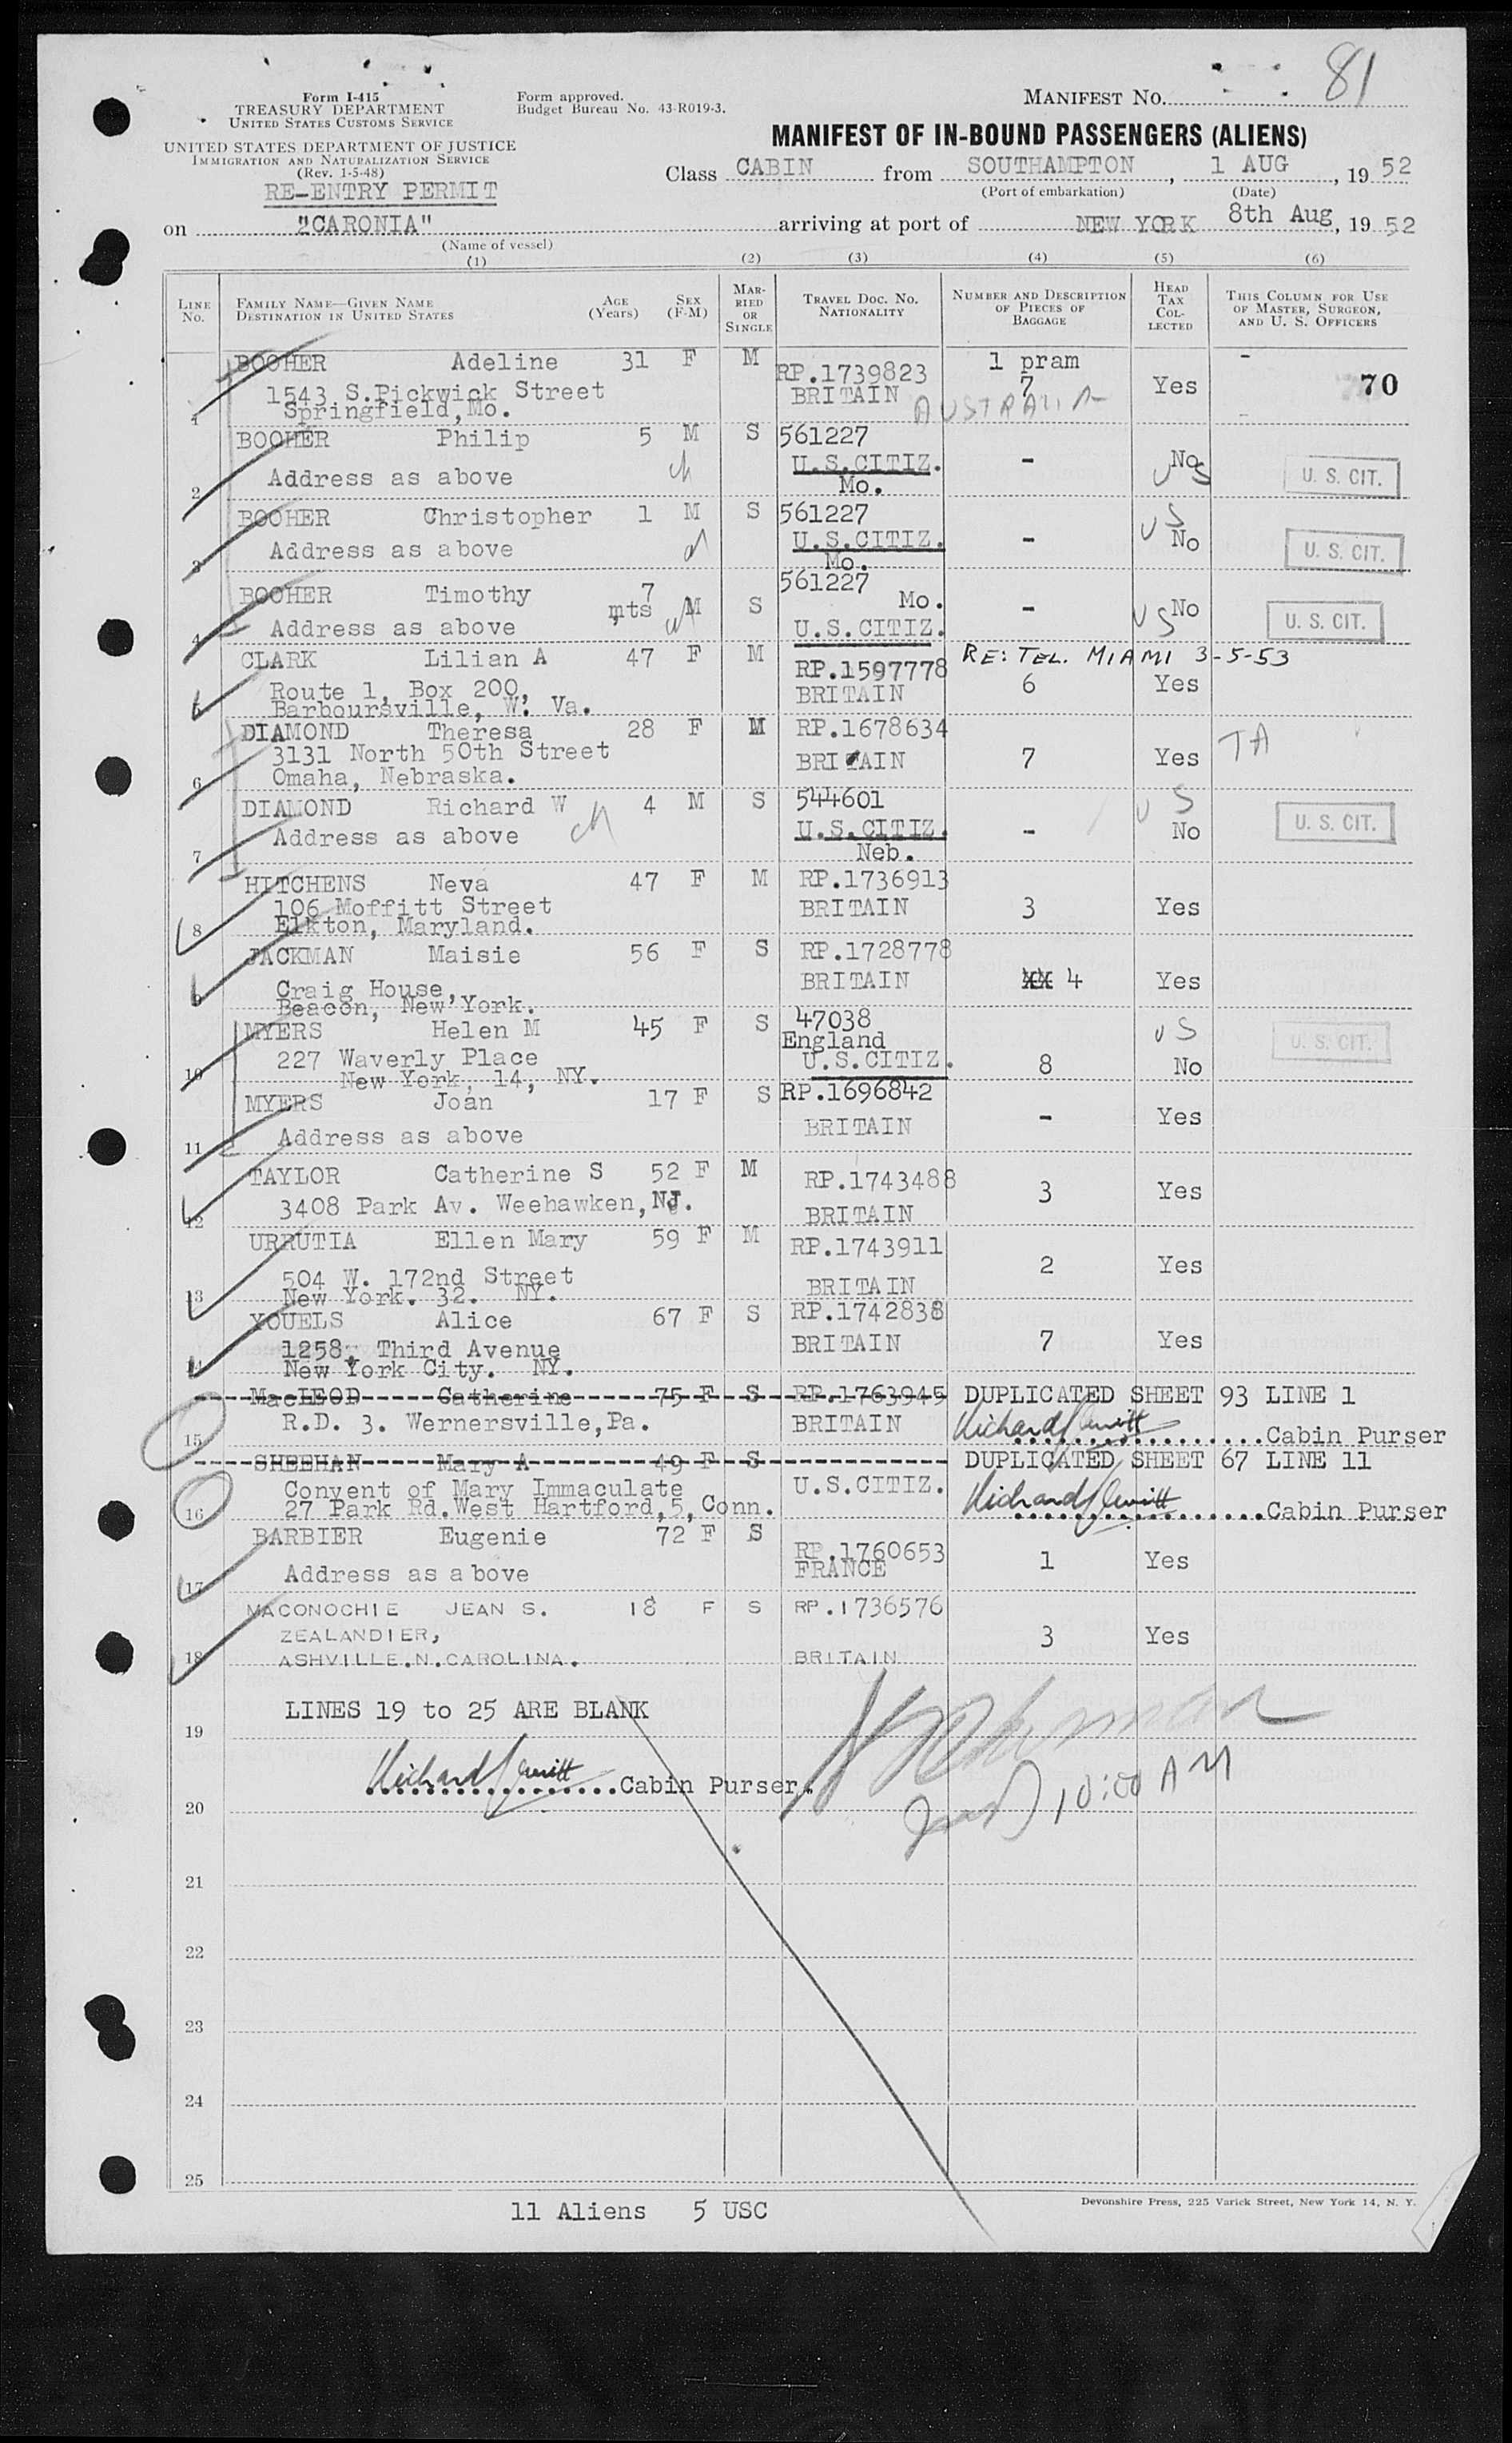 81
Form I-415
TREASURY DEPARTMENT
UNITED STATES CUSTOMS SERVICE
UNITED STATES DEPARTMENT OF JUSTICE
IMMIGRATION AND NATURALIZATION SERVICE
(Rev. 1-5-48)
RE-ENTRY PERMIT
Form approved.
Budget Bureau No. 43-R019-3.
MANIFEST NO.
MANIFEST OF IN-BOUND PASSENGERS (ALIENS)
Class CABIN from SOUTHAMPTON, 1 AUG, 19 52
(Port of embarkation) (Date)
on "CARONIA" arriving at port of NEW YORK 8th Aug, 19 52
(Name of vessel)
(1) (2) (3) (4) (5) (6)
LINE NO. FAMILY NAME—GIVEN NAME DESTINATION IN UNITED STATES AGE (Years) SEX (F-M) MARRIED OR SINGLE TRAVEL DOC. NO. NATIONALITY NUMBER AND DESCRIPTION OF PIECES OF BAGGAGE HEAD TAX COLLECTED THIS COLUMN FOR USE OF MASTER, SURGEON, AND U. S. OFFICERS
BOOHER Adeline 31 F M RP.1739823 1 pram
1 1543 S.Pickwick Street BRITAIN 7 Yes 70
Springfield,Mo. AUSTRALIA
BOOHER Philip 5 M S 561227
2 Address as above U.S.CITIZ. - No US U. S. CIT.
Mo.
BOOHER Christopher 1 M S 561227 US
3 Address as above U.S.CITIZ. - No U. S. CIT.
Mo.
BOOHER Timothy 7 mts M S 561227
Mo. - US No U. S. CIT.
4 Address as above U.S.CITIZ.
CLARK Lilian A 47 F M RP.1597778 RE: TEL. MIAMI 3-5-53
Route 1, Box 200, BRITAIN 6 Yes
Barboursville, W. Va.
DIAMOND Theresa 28 F M RP.1678634
3131 North 50th Street BRITAIN 7 Yes TA
6 Omaha, Nebraska.
DIAMOND Richard W 4 M S 544601 US
7 Address as above ch U.S.CITIZ. - No U. S. CIT.
Neb.
HITCHENS Neva 47 F M RP.1736913
106 Moffitt Street BRITAIN 3 Yes
8 Elkton, Maryland.
JACKMAN Maisie 56 F S RP.1728778
9 Craig House, BRITAIN XX 4 Yes
Beacon, New York.
MYERS Helen M 45 F S 47038 US
England
10 227 Waverly Place U.S.CITIZ. 8 No U. S. CIT.
New York, 14, NY.
MYERS Joan 17 F S RP.1696842
11 Address as above BRITAIN - Yes
TAYLOR Catherine S 52 F M RP.1743488
12 3408 Park Av. Weehawken,NJ. BRITAIN 3 Yes
URRUTIA Ellen Mary 59 F M RP.1743911
504 W. 172nd Street BRITAIN 2 Yes
13 New York. 32. NY.
YOUELS Alice 67 F S RP.1742838
1258, Third Avenue BRITAIN 7 Yes
14 New York City. NY.
MacLEOD Catherine 75 F S RP.1763945 DUPLICATED SHEET 93 LINE 1
15 R.D. 3. Wernersville,Pa. BRITAIN Cabin Purser
SHEEHAN Mary A 49 F S DUPLICATED SHEET 67 LINE 11
Convent of Mary Immaculate U.S.CITIZ.
16 27 Park Rd.West Hartford,5,Conn. Cabin Purser
BARBIER Eugenie 72 F S RP.1760653
17 Address as above FRANCE 1 Yes
MACONOCHIE JEAN S. 18 F S RP.1736576
ZEALANDIER, 3 Yes
18 ASHVILLE.N.CAROLINA. BRITAIN
LINES 19 to 25 ARE BLANK
19
Cabin Purser.
10:00 AM
20
21
22
23
24
25
11 Aliens 5 USC
Devonshire Press, 225 Varick Street, New York 14, N. Y.